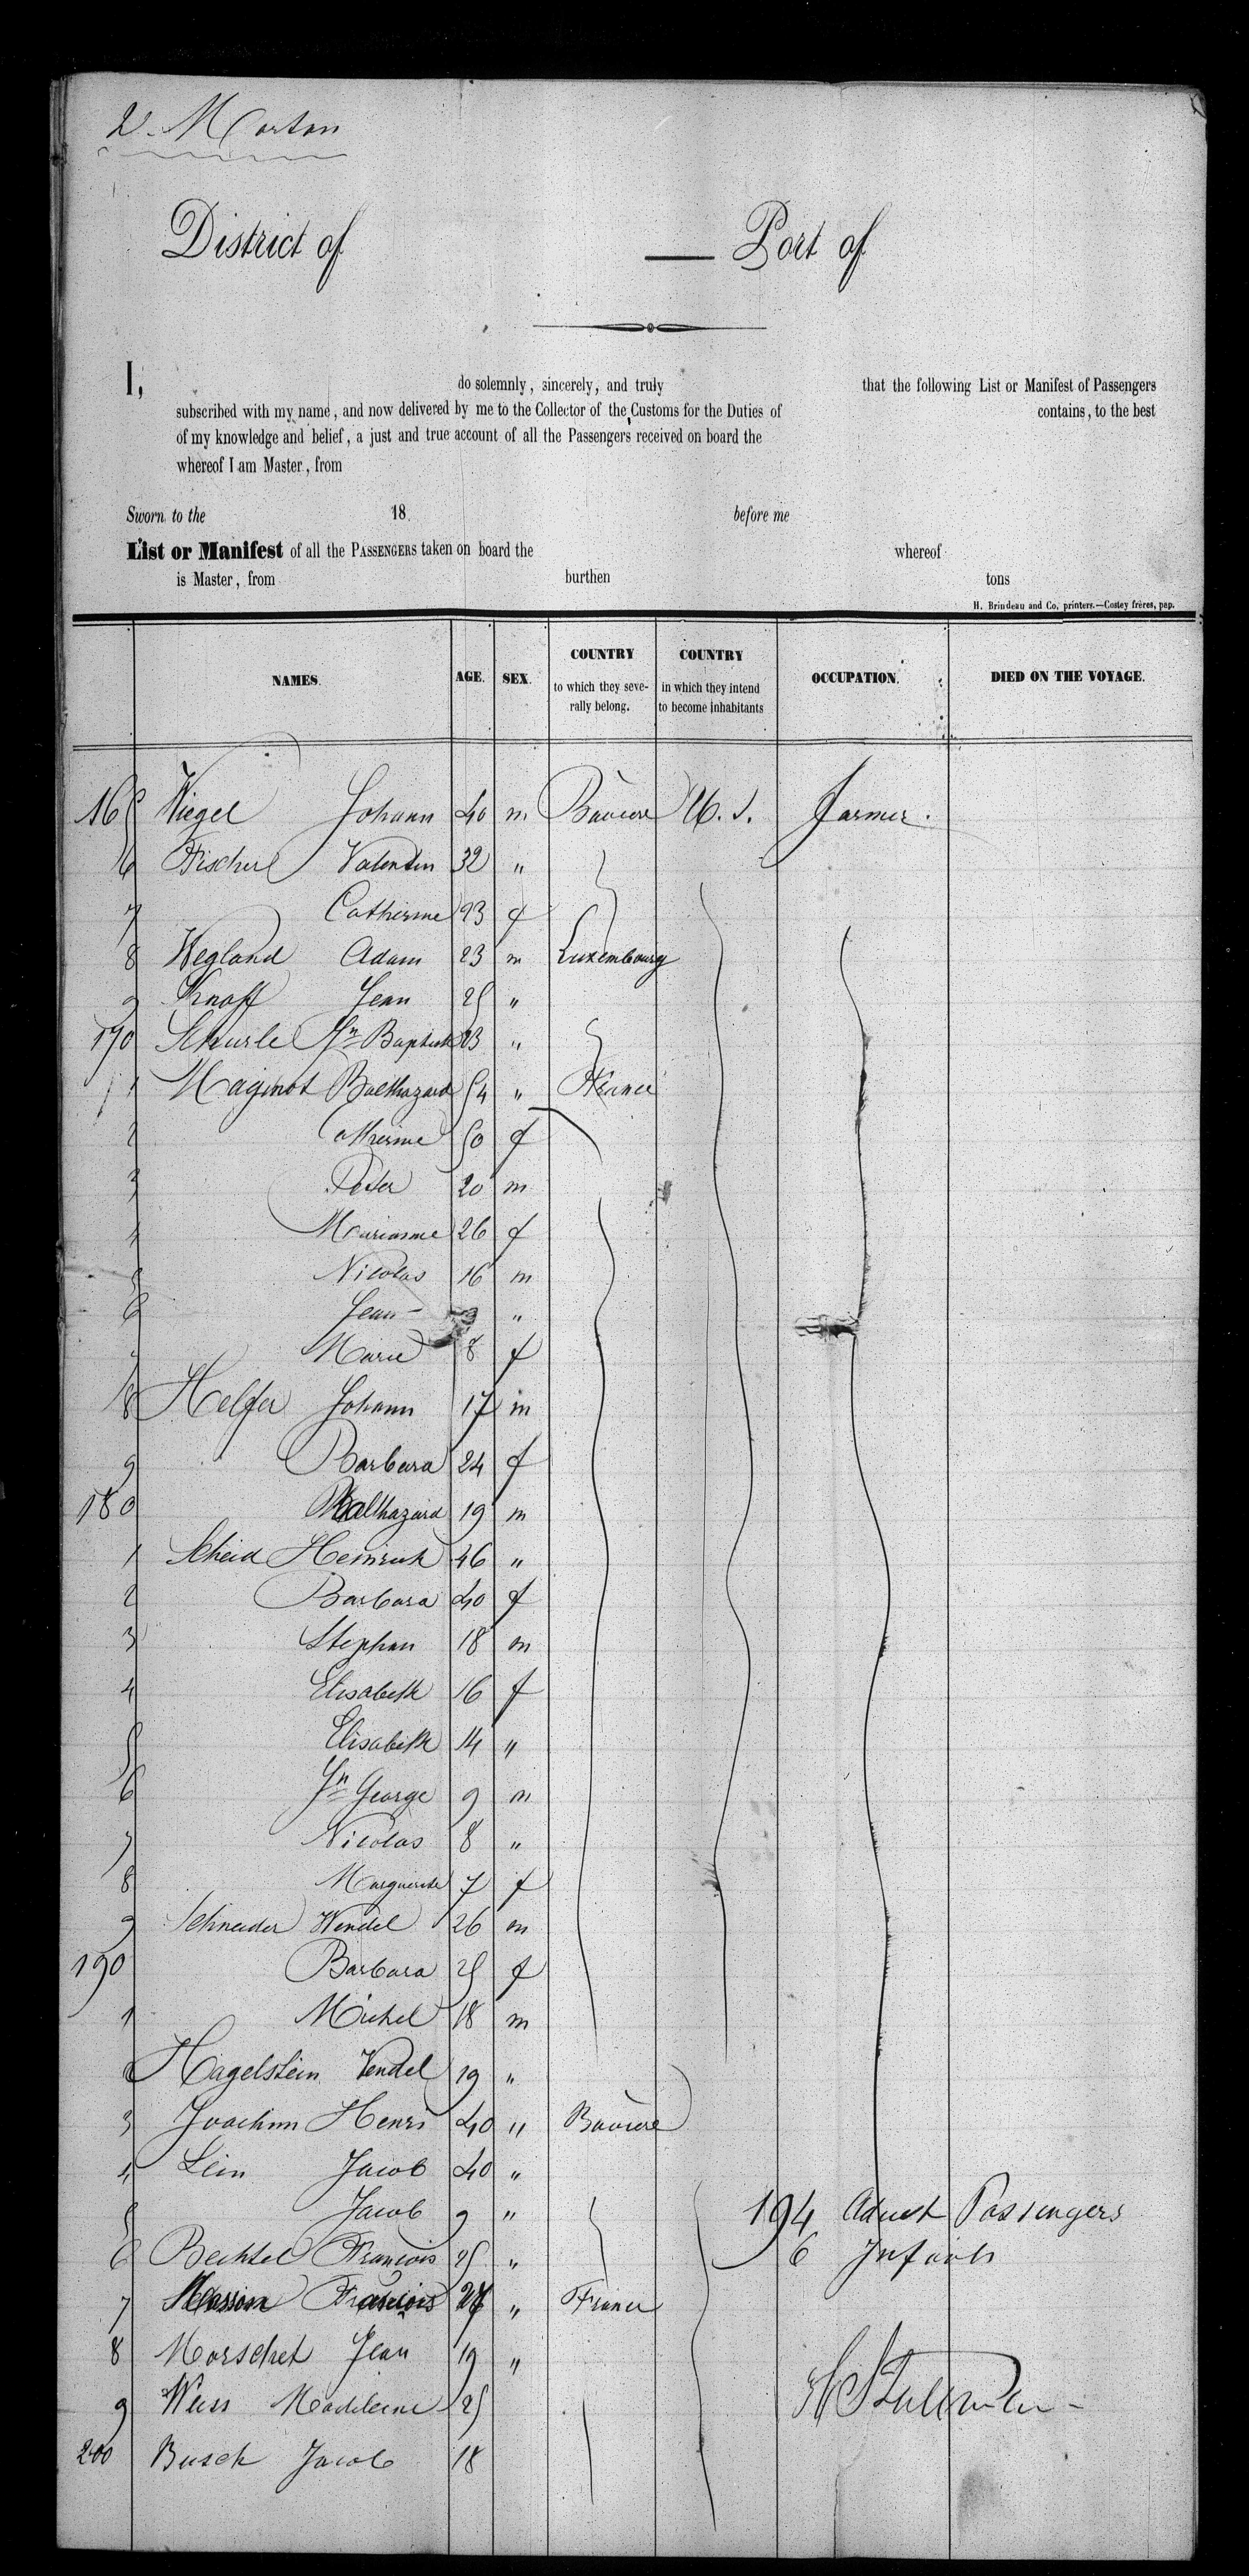 W. Morton
District of — Port of
I, do solemnly, sincerely, and truly that the following List or Manifest of Passengers
subscribed with my name, and now delivered by me to the Collector of the Customs for the Duties of contains, to the best
of my knowledge and belief, a just and true account of all the Passengers received on board the
whereof I am Master, from
Sworn to the 18 before me
List or Manifest of all the PASSENGERS taken on board the whereof
is Master, from burthen tons
H. Brindeau and Co, printers.—Costey frères, pap.
NAMES. AGE. SEX. COUNTRY to which they severally belong. COUNTRY in which they intend to become inhabitants OCCUPATION. DIED ON THE VOYAGE.
165 Wiegel Johann 40 m Baviere U. S. farmer.
6 Fischer Valentin 32 "
7 Catherine 23 f
8 Wegland Adam 23 m Luxembourg
9 Knaff Jean 25 "
170 Schurle Jn Baptiste 23 "
1 Maginot Balthazard 54 " France
2 Catherine 50 f
3 Peter 20 m
4 Marianne 26 f
5 Nicolas 16 m
6 Jean "
7 Marie 8 f
8 Helfer Johann 17 m
9 Barbara 24 f
180 Balthazard 19 m
1 Scheid Heinrich 46 "
2 Barbara 40 f
3 Stephan 18 m
4 Elisabeth 16 f
5 Elisabeth 14 "
6 Jn George 9 m
7 Nicolas 8 "
8 Marguerite 7 f
9 Schneider Wendel 26 m
190 Barbara 25 f
1 Michel 18 m
2 Hagelstein Vendel 19 "
3 Joachim Henri 40 " Baviere
4 Lein Jacob 40 "
5 Jacob 9 " 194 Adult Passengers
6 Bechtel François 25 " 6 Infants
7 Masson François 27 " France
8 Morschet Jean 19 "
9 Weiss Madeleine 25
200 Busch Jacob 18